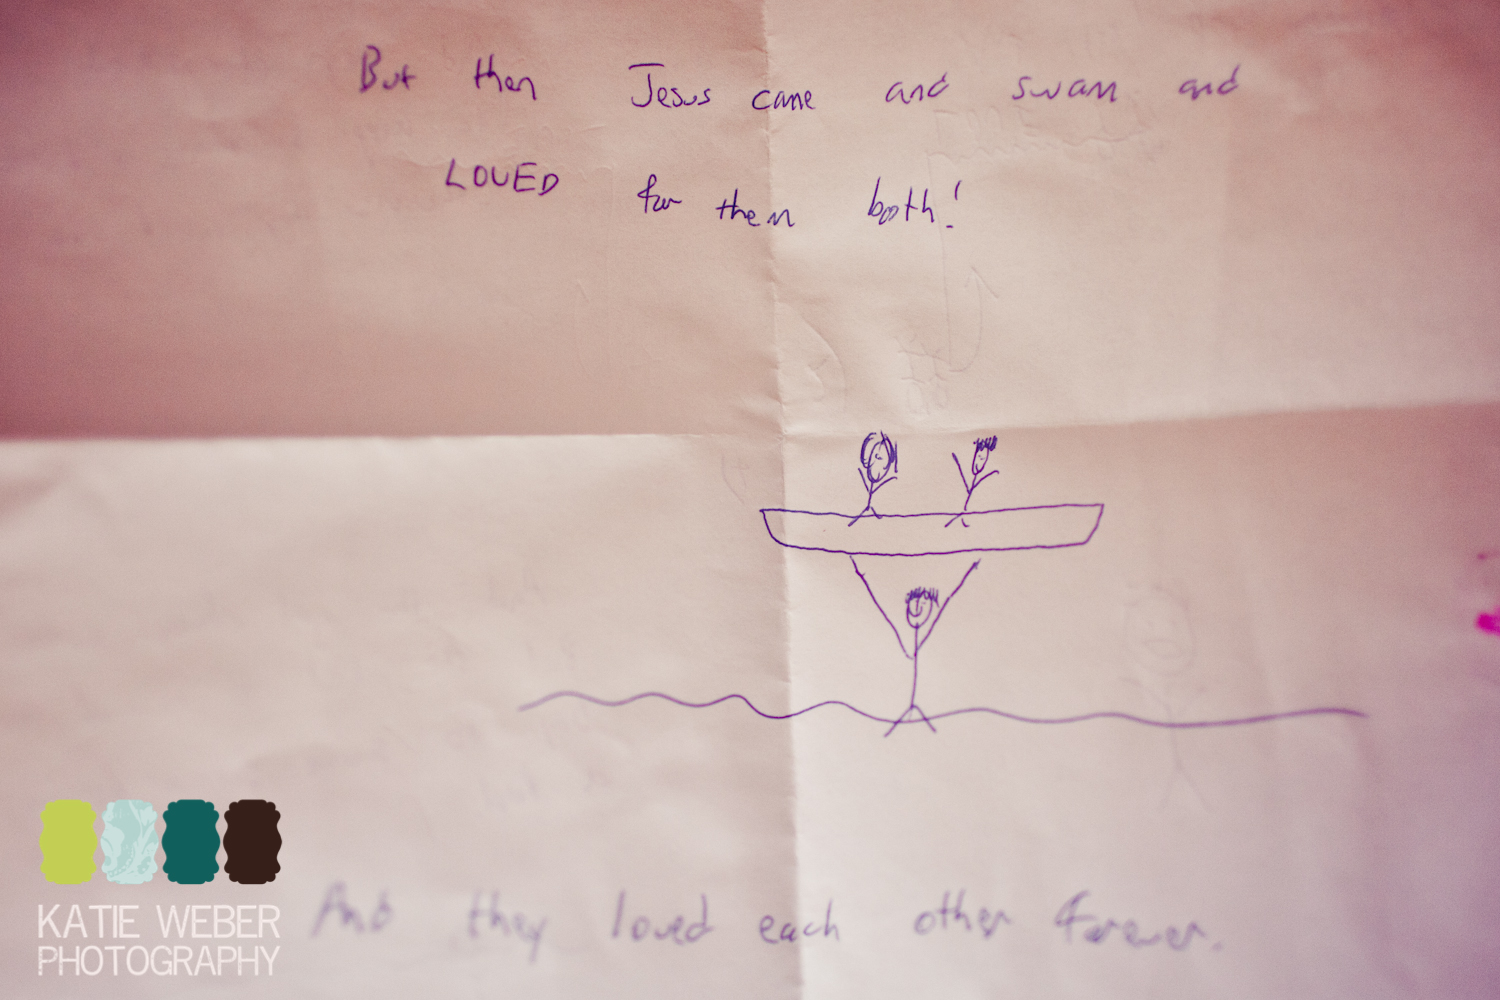 But then Jesus came and swam and
LOVED for them both!
And they loved each other forever.
KATIE WEBER
PHOTOGRAPHY